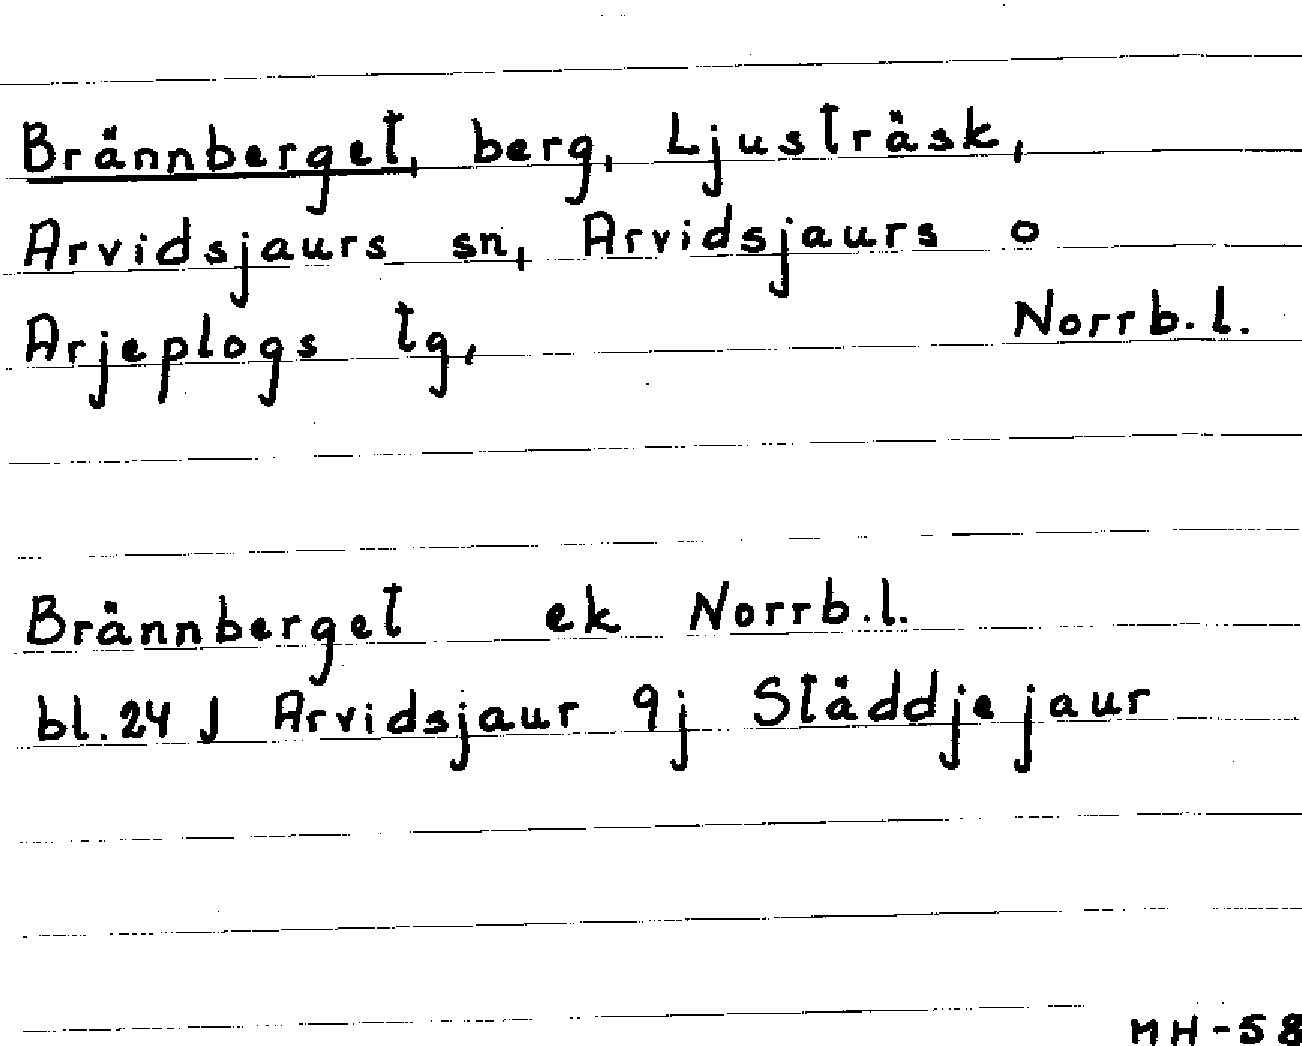 Brännberget, berg, Ljusträsk,
Arvidsjaurs sn, Arvidsjaurs o
Arjeplogs tg, Norrb.l.
Brännberget ek Norrb.l.
bl. 24 J Arvidsjaur 9jStåddjejaur
MH-58